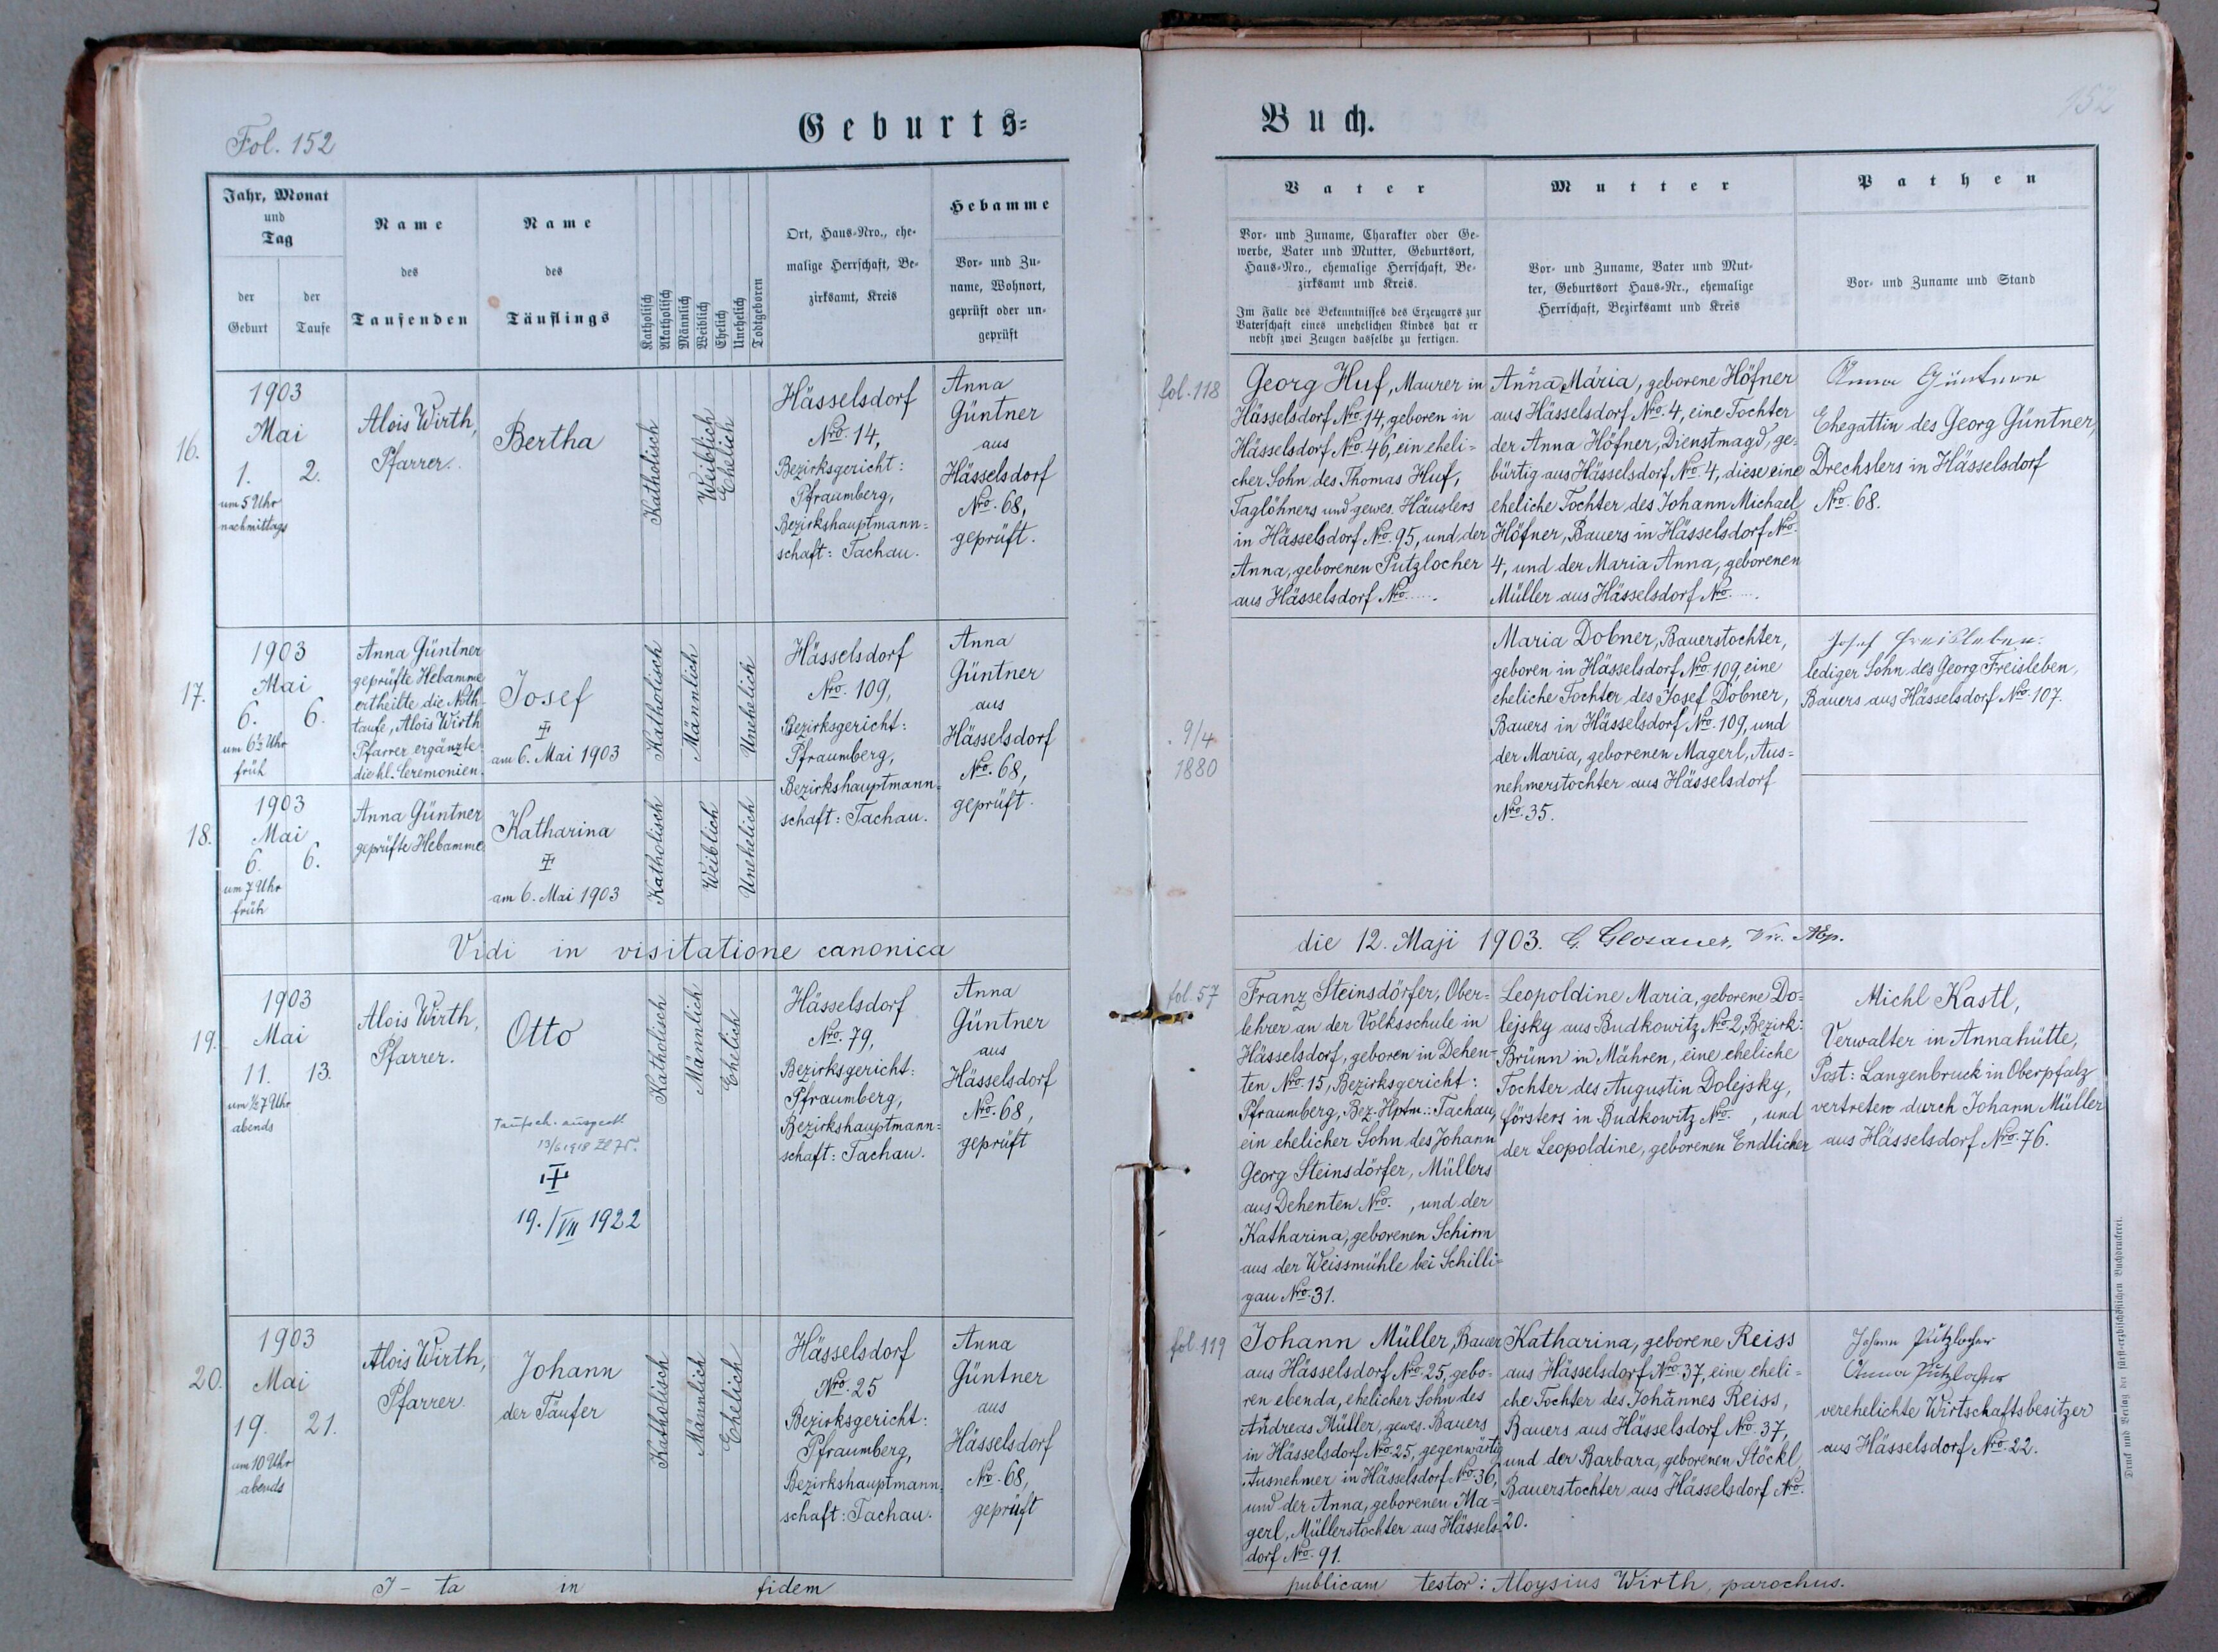 Fol. 152
Geburts=
Jahr, Monat
und
Tag
der
Geburt
der
Taufe
Name
des
Taufenden
Name
des
Täuflings
Katholisch
Akatholisch
Männlich
Weiblich
Ehelich
Unehelich
Todtgeboren
Ort, Haus=Nro., ehe=
malige Herrschaft, Be=
zirksamt, Kreis
Hebamme
Vor= und Zu=
name, Wohnort,
geprüft oder un=
geprüft
16.
1903
Mai
1. 2.
um 5 Uhr
nachmittags
Alois Wirth,
Pfarrer.
Bertha
Katholisch
Weiblich
Ehelich
Hässelsdorf
Nro. 14,
Bezirksgericht:
Pfraumberg,
Bezirkshauptmann=
schaft: Tachau.
Anna
Güntner
aus
Hässelsdorf
Nro. 68,
geprüft.
17.
1903
Mai
6. 6.
um 6½ Uhr
früh
Anna Güntner
geprüfte Hebamme
ertheilte die Noth=
taufe, Alois Wirth
Pfarrer ergänzte
die hl. Ceremonien.
Josef
am 6. Mai 1903
Katholisch
Männlich
Unehelich
Hässelsdorf
Nro. 109,
Bezirksgericht:
Pfraumberg,
Bezirkshauptmann=
schaft: Tachau.
Anna
Güntner
aus
Hässelsdorf
Nro. 68,
geprüft.
18.
1903
Mai
6. 6.
um 7 Uhr
früh
Anna Güntner
geprüfte Hebamme.
Katharina
am 6. Mai 1903
Katholisch
Weiblich
Unehelich
Vidi in visitatione canonica
19.
1903
Mai
11. 13.
um ½7 Uhr
abends
Alois Wirth,
Pfarrer.
Otto
13/6 1918
19./VII 1922
Katholisch
Männlich
Ehelich
Hässelsdorf
Nro. 79,
Bezirksgericht:
Pfraumberg,
Bezirkshauptmann=
schaft: Tachau.
Anna
Güntner
aus
Hässelsdorf
Nro. 68,
geprüft
20.
1903
Mai
19. 21.
um 10 Uhr
abends
Alois Wirth,
Pfarrer.
Johann
der Täufer
Katholisch
Männlich
Ehelich
Hässelsdorf
Nro. 25
Bezirksgericht:
Pfraumberg,
Bezirkshauptmann=
schaft: Tachau.
Anna
Güntner
aus
Hässelsdorf
Nro. 68,
geprüft
I-ta in fidem
Buch.
152
Vater
Vor= und Zuname, Charakter oder Ge=
werbe, Vater und Mutter, Geburtsort,
Haus=Nro., ehemalige Herrschaft, Be=
zirksamt und Kreis.
Im Falle des Bekenntnisses des Erzeugers zur
Vaterschaft eines unehelichen Kindes hat er
nebst zwei Zeugen dasselbe zu fertigen.
Mutter
Vor= und Zuname, Vater und Mut=
ter, Geburtsort Haus=Nr., ehemalige
Herrschaft, Bezirksamt und Kreis
Pathen
Vor= und Zuname und Stand
fol. 118
Georg Huf, Maurer in
Hässelsdorf Nro. 14, geboren in
Hässelsdorf Nro. 46, ein eheli=
cher Sohn des Thomas Huf,
Taglöhners und gewes. Häuslers
in Hässelsdorf Nro. 95, und der
Anna, geborenen Putzlocher
aus Hässelsdorf Nro. .....
Anna Maria, geborene Höfner
aus Hässelsdorf Nro. 4, eine Tochter
der Anna Höfner, Dienstmagd, ge=
bürtig aus Hässelsdorf Nro. 4, diese eine
eheliche Tochter des Johann Michael
Höfner, Bauers in Hässelsdorf Nro.
4, und der Maria Anna, geborenen
Müller aus Hässelsdorf Nro. ....
Anna Güntner
Ehegattin des Georg Güntner,
Drechslers in Hässelsdorf
Nro. 68.
9/4
1880
Maria Dobner, Bauerstochter,
geboren in Hässelsdorf, Nro. 109, eine
eheliche Tochter des Josef Dobner,
Bauers in Hässelsdorf Nro. 109, und
der Maria, geborenen Magerl, Aus=
nehmerstochter aus Hässelsdorf
Nro. 35.
Josef Freisleben.
lediger Sohn des Georg Freisleben,
Bauers aus Hässelsdorf Nro. 107.
die 12. Maji 1903. G. Glosauer,
fol. 57
Franz Steinsdörfer, Ober=
lehrer an der Volksschule in
Hässelsdorf, geboren in Dehen=
ten Nro. 15, Bezirksgericht:
Pfraumberg, Bez. Hptm.: Tachau,
ein ehelicher Sohn des Johann
Georg Steinsdörfer, Müllers
aus Dehenten Nro. , und der
Katharina, geborenen Schirm
aus der Weissmühle bei Schilli=
gau Nro. 31.
Leopoldine Maria, geborene Do=
lejsky aus Budkowitz Nro. 2, Bezirk:
Brünn in Mähren, eine eheliche
Tochter des Augustin Dolejsky,
Försters in Budkowitz Nro. , und
der Leopoldine, geborenen Endlicher
Michl Kastl,
Verwalter in Annahütte,
Post: Langenbruck in Oberpfalz
vertreten durch Johann Müller
aus Hässelsdorf Nro. 76.
fol. 119
Johann Müller, Bauer
aus Hässelsdorf Nro. 25, gebo=
ren ebenda, ehelicher Sohn des
Andreas Müller, gewes. Bauers
in Hässelsdorf Nro. 25, gegenwärtig
Ausnehmer in Hässelsdorf Nro. 36,
und der Anna, geborenen Ma=
gerl, Müllerstochter aus Hässels=
dorf Nro. 91.
Katharina, geborene Reiss
aus Hässelsdorf Nro. 37, eine eheli=
che Tochter des Johannes Reiss,
Bauers aus Hässelsdorf Nro. 37,
und der Barbara, geborenen Stöckl,
Bauerstochter aus Hässelsdorf Nro.
20.
Johann Putzlocher
Anna Putzlocher
verehelichte Wirtschaftsbesitzer
aus Hässelsdorf Nro. 22.
publicam testor: Aloysius Wirth, parochus.
Druck und Verlag der fürst=erzbischöflichen Buchdruckerei.